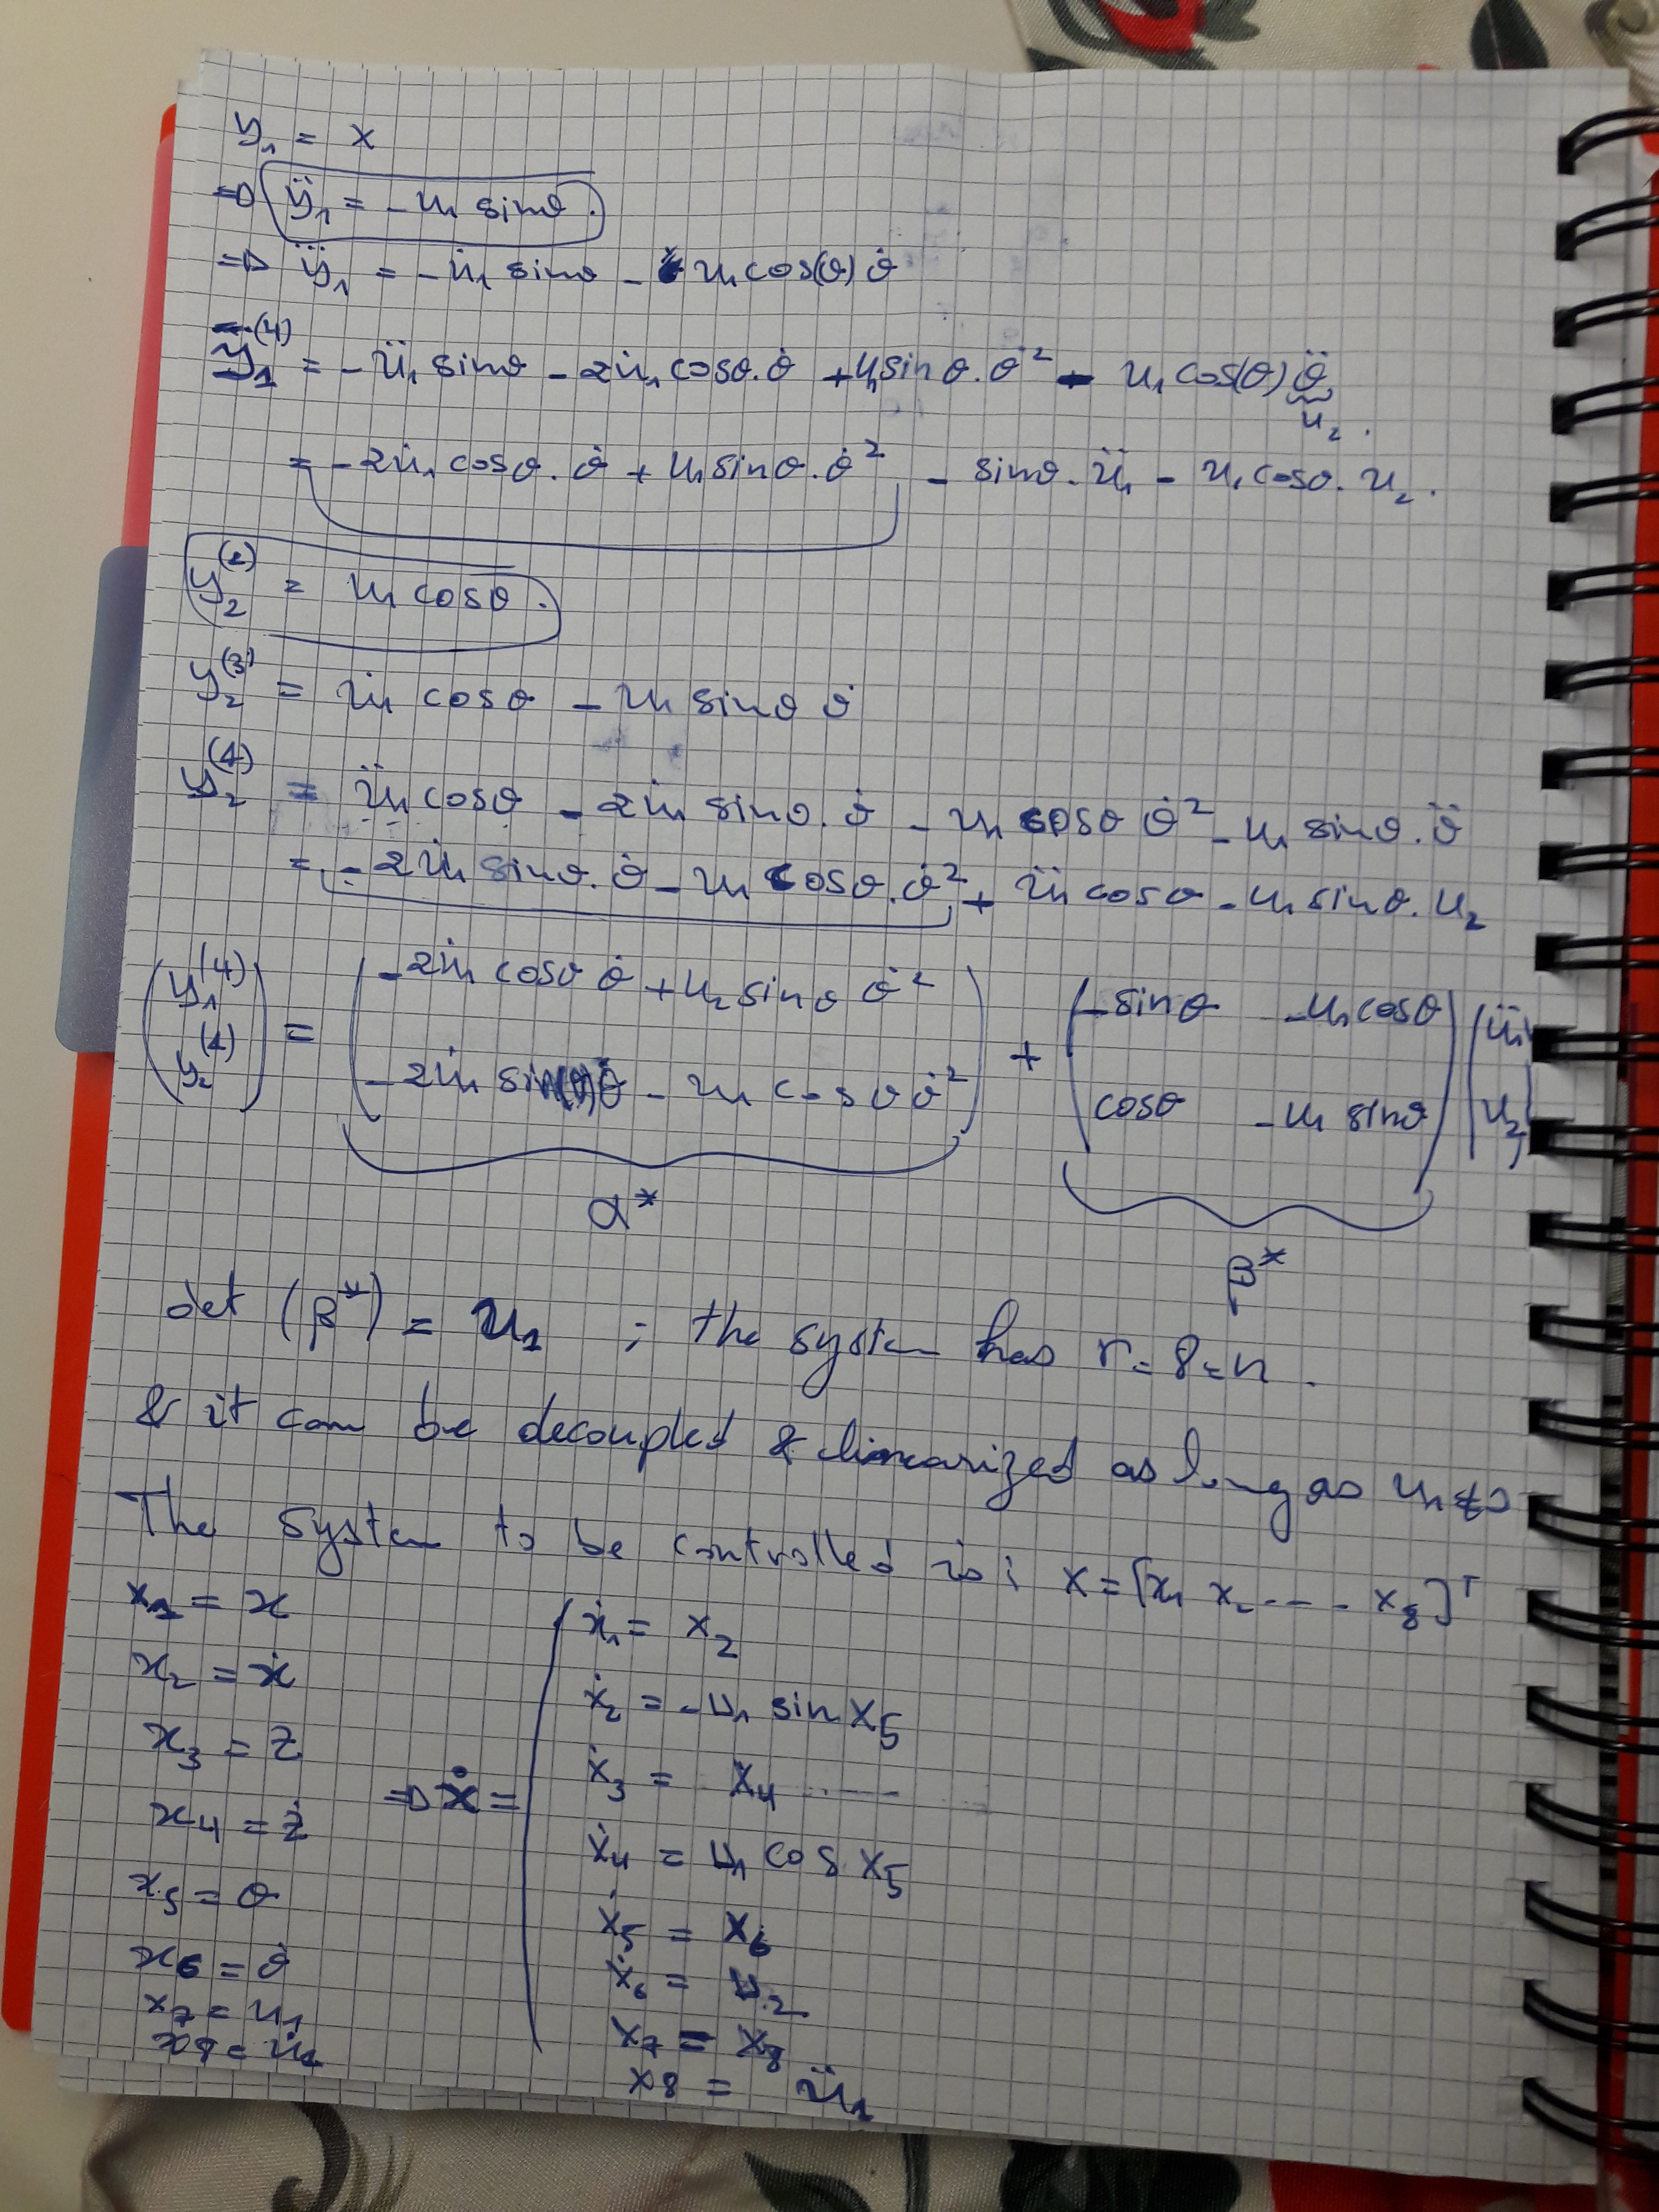 y₁ = x
⇒ ÿ₁ = -u₁ sinθ.
⇒ y⃛₁ = -u̇₁ sinθ - u₁ cos(θ) θ̇
y₁⁽⁴⁾ = -ü₁ sinθ - 2u̇₁ cosθ.θ̇ + u₁ sinθ.θ̇² - u₁ cos(θ) θ̈
u₂.
= -2u̇₁ cosθ.θ̇ + u₁ sinθ.θ̇² - sinθ.ü₁ - u₁ cosθ.u₂.
y₂⁽²⁾ = u₁ cosθ.
y₂⁽³⁾ = u̇₁ cosθ - u₁ sinθ θ̇
y₂⁽⁴⁾ = ü₁ cosθ - 2u̇₁ sinθ.θ̇ - u₁ cosθ θ̇² - u₁ sinθ.θ̈
= -2u̇₁ sinθ.θ̇ - u₁ cosθ.θ̇² + ü₁ cosθ - u₁ sinθ.u₂
(y₁⁽⁴⁾ y₂⁽⁴⁾) = (-2u̇₁ cosθ θ̇ + u₂ sinθ θ̇² -2u̇₁ sin(θ)θ̇ - u₁ cosθ θ̇²) + (-sinθ -u₁cosθ cosθ -u₁ sinθ) (ü₁ u₂)
α*
β*
det (β*) = u₁ ; the system has r = 8 = n.
& it can be decoupled & linearized as long as u₁ ≠ 0
The system to be controlled is : X = [x₁ x₂ ---- x₈]ᵀ
x₁ = x
x₂ = ẋ
x₃ = z
x₄ = ż
x₅ = θ
x₆ = θ̇
x₇ = u₁
x₈ = u̇₁
⇒ Ẋ =
ẋ₁ = x₂
ẋ₂ = -u₁ sin x₅
ẋ₃ = x₄
ẋ₄ = u₁ cos x₅
ẋ₅ = x₆
ẋ₆ = u₂
x₇ = x₈
x₈ = ü₁